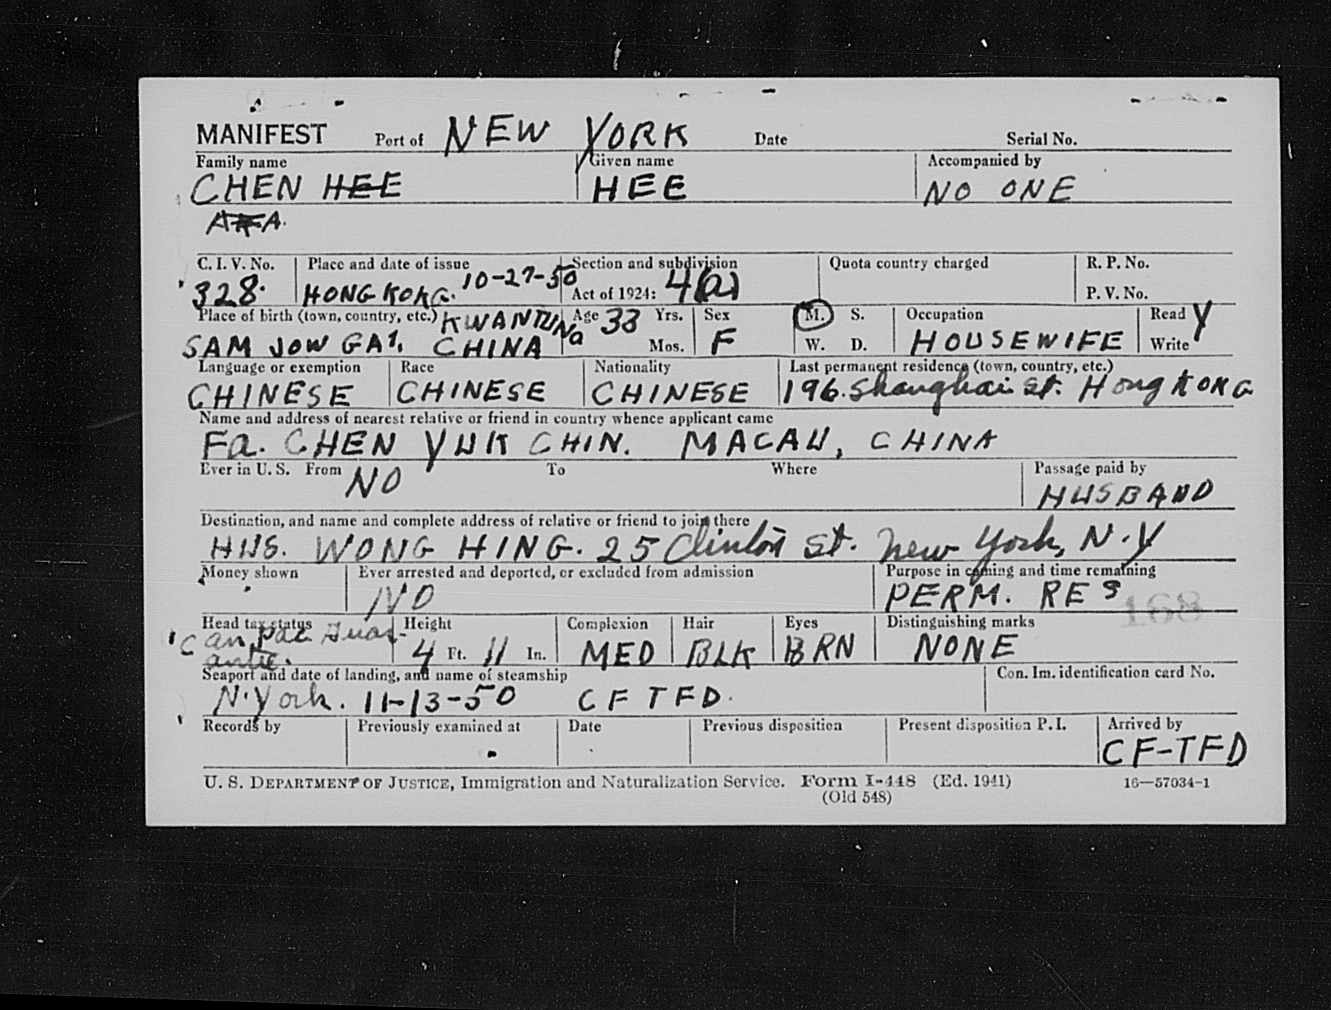 MANIFEST Port of NEW YORK Date Serial No.
Family name Given name Accompanied by
CHEN HEE HEE NO ONE
AKA.
C. I. V. No. Place and date of issue Section and subdivision Quota country charged R. P. No.
328. HONG KONG. 10-27-50 Act of 1924: 4(a) P. V. No.
Place of birth (town, country, etc.) KWANTUNG Age 33 Yrs. Sex M. S. Occupation Read Y
SAM JOW GAI, CHINA Mos. F W. D. HOUSEWIFE Write
Language or exemption Race Nationality Last permanent residence (town, country, etc.)
CHINESE CHINESE CHINESE 196. Shanghai St. Hong KONG
Name and address of nearest relative or friend in country whence applicant came
Fa. CHEN YUK CHIN. MACAU, CHINA
Ever in U. S. From NO To Where Passage paid by
HUSBAND
Destination, and name and complete address of relative or friend to join there
HUS. WONG HING. 25 Clinton St. New York, N.Y
Money shown Ever arrested and deported, or excluded from admission Purpose in coming and time remaining
NO PERM. RES
168
Head tax status Height Complexion Hair Eyes Distinguishing marks
Can Pac Guar-
antee. 4 Ft. 11 In. MED BLK BRN NONE
Seaport and date of landing, and name of steamship Con. Im. identification card No.
N.York. 11-13-50 CF TFD.
Records by Previously examined at Date Previous disposition Present disposition P. I. Arrived by
CF-TFD
U. S. DEPARTMENT OF JUSTICE, Immigration and Naturalization Service. Form I-448 (Ed. 1941) 16—57034-1
(Old 548)